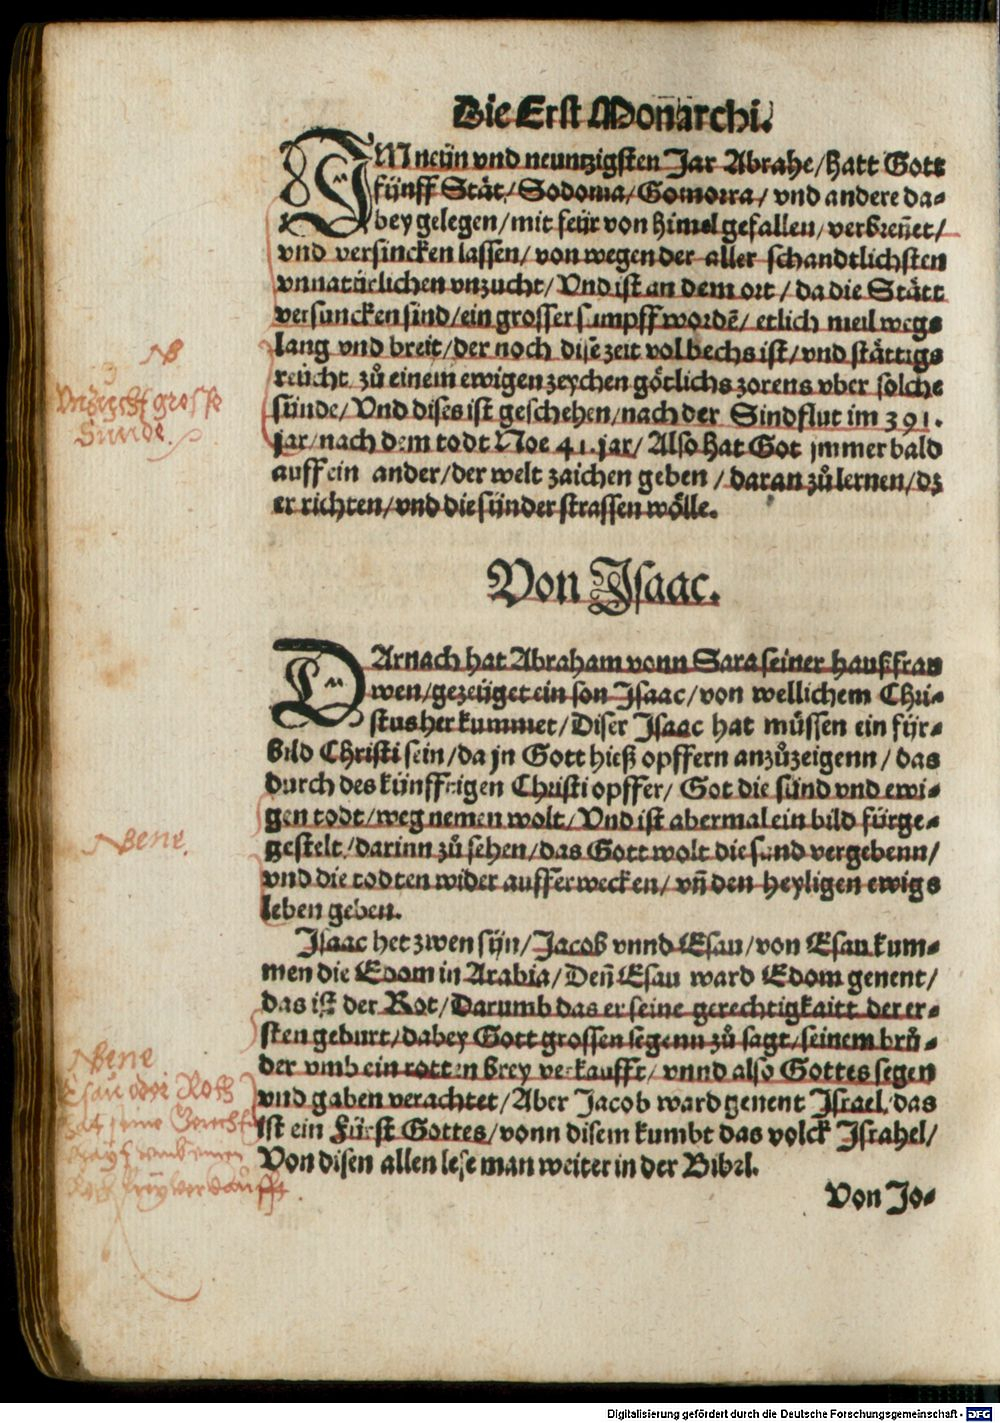 Die Erst Monarchi.
IM neün vnd neuntzigsten Jar Abrahe/hatt Gott
fünff Stät/Sodoma/Gomorra/ vnd andere da-
bey gelegen/mit feür von himel gefallen/verbreñet/
vnd versincken lassen/von wegen der aller schandtlichsten
vnnatürlichen vnzucht/Vnd ist an dem ort/da die Stätt
versuncken sind/ein grosser sumpff wordē/etlich meil wegs
lang vnd breit/der noch dise zeit vol bechs ist/vnd stättigs
reücht zů einem ewigen zeychen götlichs zorens vber solche
sünde/Vnd dises ist geschehen/nach der Sindflut im 391.
jar/nach dem todt Noe 41. jar/Also hat Got jmmer bald
auff ein ander/der welt zaichen geben/daran zů lernen/dz
er richten/vnd die sünder strassen wölle.
NB
Vnzucht grosse
Sünde.
Von Isaac.
DArnach hat Abraham vonn Sara seiner haußfraw
wen/gezeüget ein son Isaac/von wellichem Chri-
stus her kummet/Diser Isaac hat müssen ein für-
bild Christi sein/da jn Gott hieß opffern anzůzeigenn/das
durch des künfftigen Christi opffer/Got die sünd vnd ewi-
gen todt/weg nemen wolt/Vnd ist abermal ein bild fürge-
gestelt/darinn zů sehen/das Gott wolt die sünd vergebenn/
vnd die todten wider aufferwecken/vñ den heyligen ewigs
leben geben.
NBene.
Isaac het zwen sün/Jacob vnnd Esau/von Esau kum-
men die Edom in Arabia/Deñ Esau ward Edom genent/
das ist der Rot/Darumb das er seine gerechtigkaitt der er-
sten geburt/dabey Gott grossen segenn zů sagt/seinem brů-
der vmb ein rotten brey verkaufft/vnnd also Gottes segen
vnd gaben verachtet/Aber Jacob ward genent Israel/das
ist ein Fürst Gottes/vonn disem kumbt das volck Israhel/
Von disen allen lese man weiter in der Bibel.
NBene
Esau der Roth
hat seine Gerecht
vmb einen
verkaufft.
Von Jo-
Digitalisierung gefördert durch die Deutsche Forschungsgemeinschaft - DFG